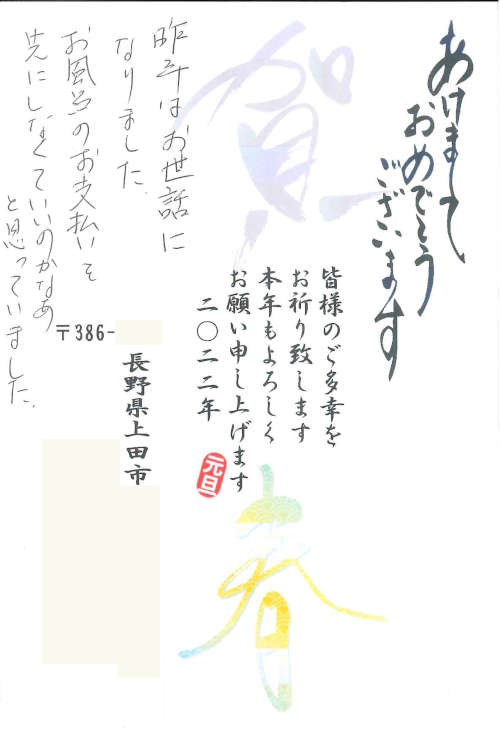 賀
春
あけまして
おめでとう
ございます
皆様のご多幸を
お祈り致します
本年もよろしく
お願い申し上げます
二〇二二年
元旦
昨年はお世話に
なりました.
お風呂のお支払いを
先にしなくていいのかなあ
と思っていました.
〒386-
長野県上田市